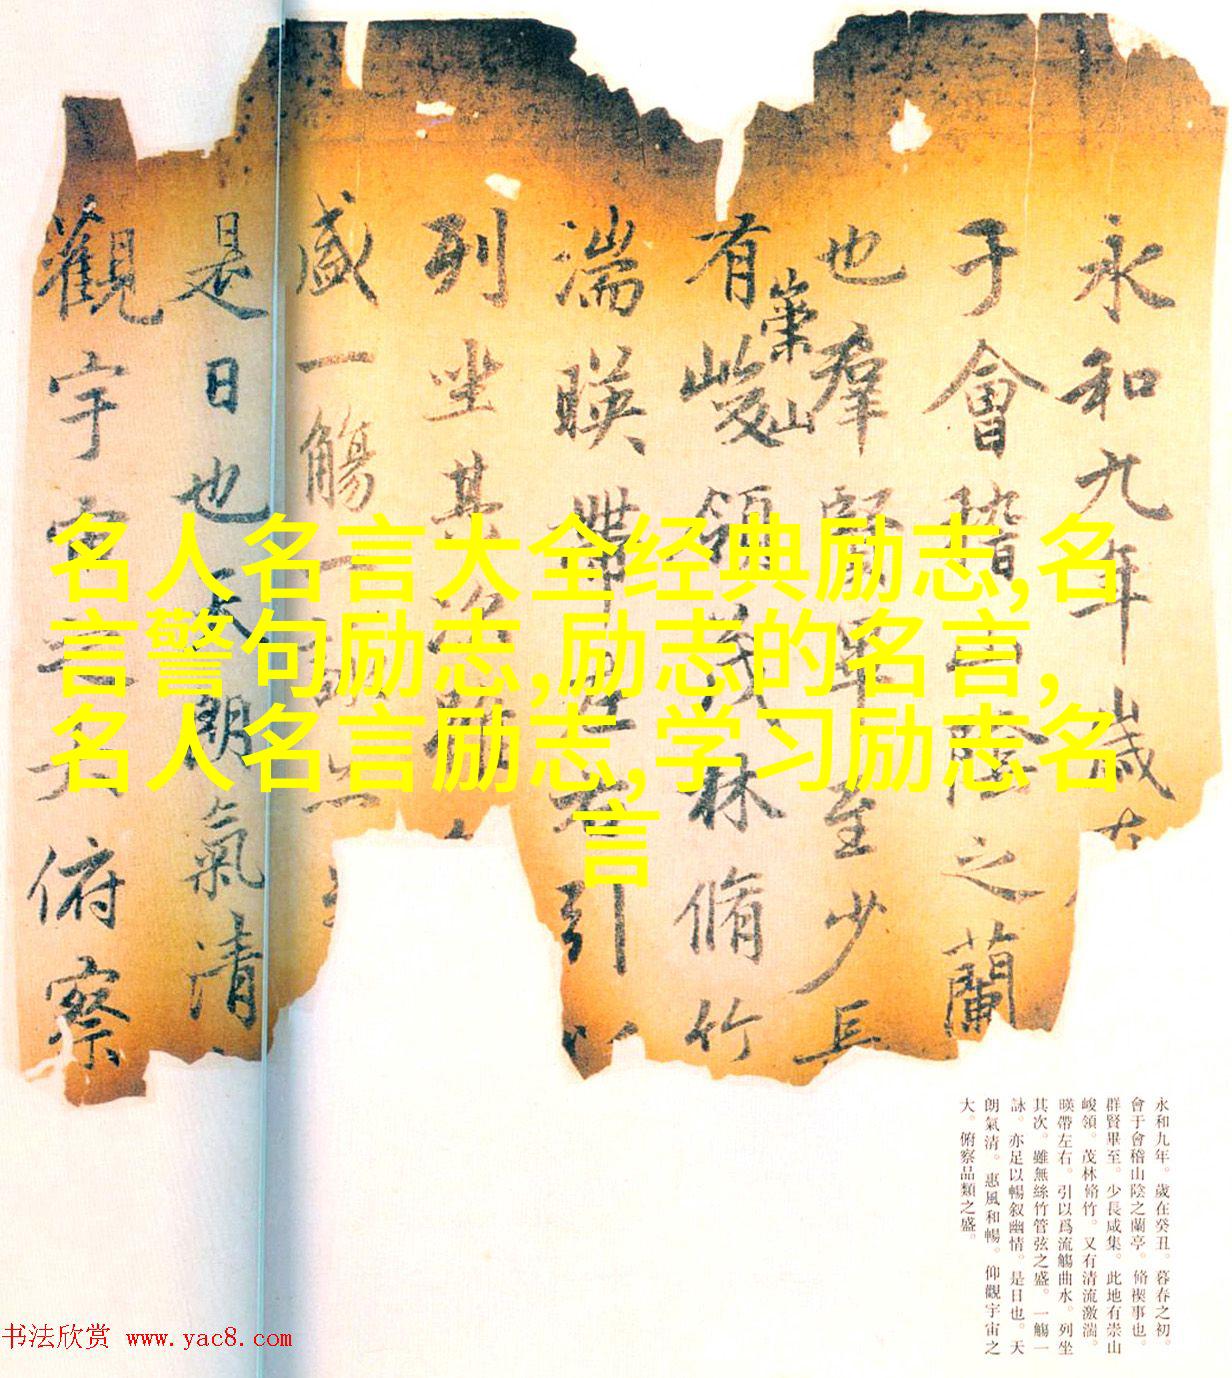 永和九年歲在
于會稽山陰之蘭
也羣賢畢至少長
有崇山峻領茂林脩竹
湍暎帶左右引以
列坐其次雖
盛一觴一詠亦
是日也天朗氣清
觀宇宙之大俯察
名人名言大全经典励志,名
言警句励志,励志的名言,
名人名言励志,学习励志名
言
永和九年。歲在癸丑。暮春之初。
會于會稽山陰之蘭亭。脩禊事也。
群賢畢至。少長咸集。此地有崇山
峻領。茂林脩竹。又有清流激湍。
暎帶左右。引以爲流觴曲水。列坐
其次。雖無絲竹管弦之盛。一觴一
詠。亦足以暢叙幽情。是日也。天
朗氣清。惠風和暢。仰觀宇宙之
大。俯察品類之盛。
书法欣赏 www.yac8.com